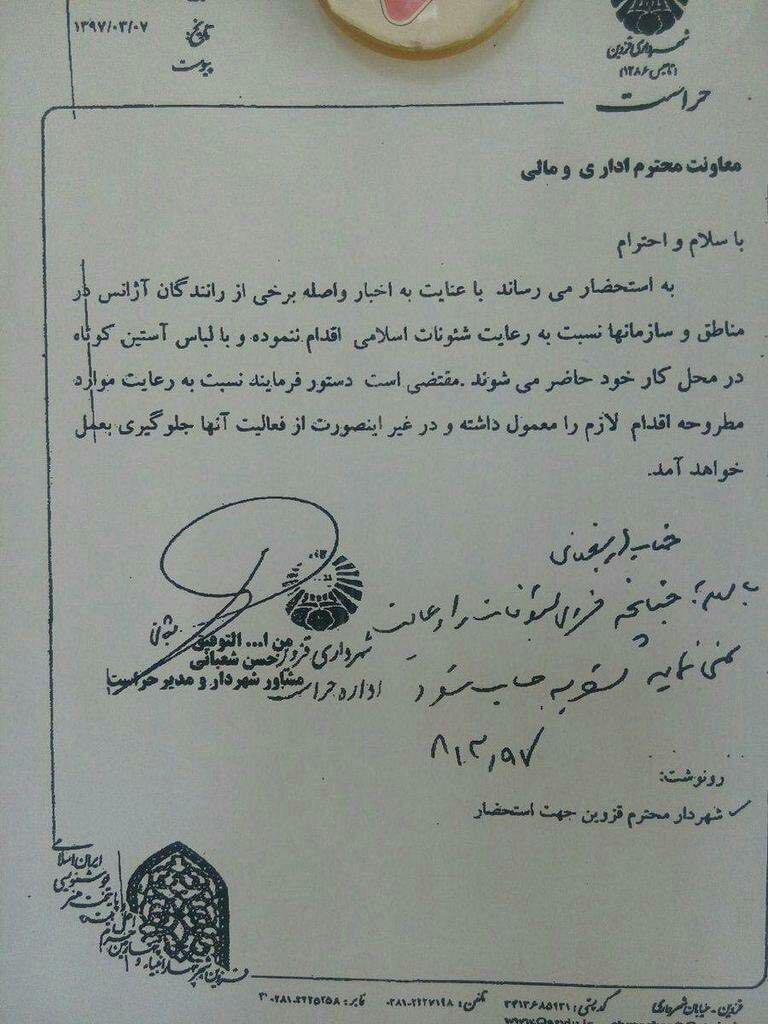 شهرداری قزوین
(تاسیس ۱۲۸۶)
حراست
تاریخ: ۱۳۹۷/۰۳/۰۷
پیوست
معاونت محترم اداری و مالی
با سلام و احترام
به استحضار می رساند با عنایت به اخبار واصله برخی از رانندگان آژانس در
مناطق و سازمانها نسبت به رعایت شئونات اسلامی اقدام ننموده و با لباس آستین کوتاه
در محل کار خود حاضر می شوند .مقتضی است دستور فرمایند نسبت به رعایت موارد
مطروحه اقدام لازم را معمول داشته و در غیر اینصورت از فعالیت آنها جلوگیری بعمل
خواهد آمد.
جناب
با سلام، چنانچه فردی شئونات را رعایت
نمی نماید تسویه حساب شود
۹۷/۳/۸
من ا... التوفیق
حسن شعبانی
مشاور شهردار و مدیر حراست
شهرداری قزوین
اداره حراست
رونوشت:
شهردار محترم قزوین جهت استحضار
ایران اسلامی
خوشنویسی
پایتخت هنر
قزوین - خیابان شهرداری
کد پستی: ۳۴۱۳۶۸۵۹۳۱
تلفن: ۰۲۸۱-۲۲۲۷۱۹۸
فابر: ۰۲۸۱-۲۲۲۵۲۵۸